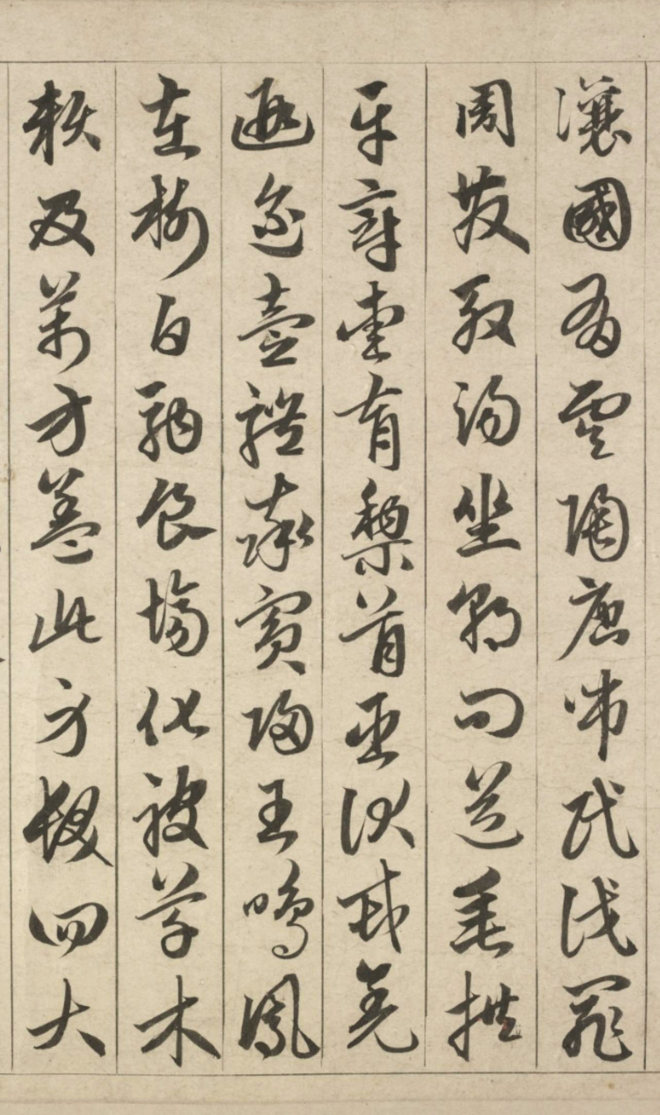 讓國有虞陶唐弔民伐罪
周發殷湯坐朝問道垂拱
平章愛育黎首臣伏戎羌
遐邇壹體率賓歸王鳴鳳
在樹白駒食場化被草木
賴及萬方蓋此身髮四大